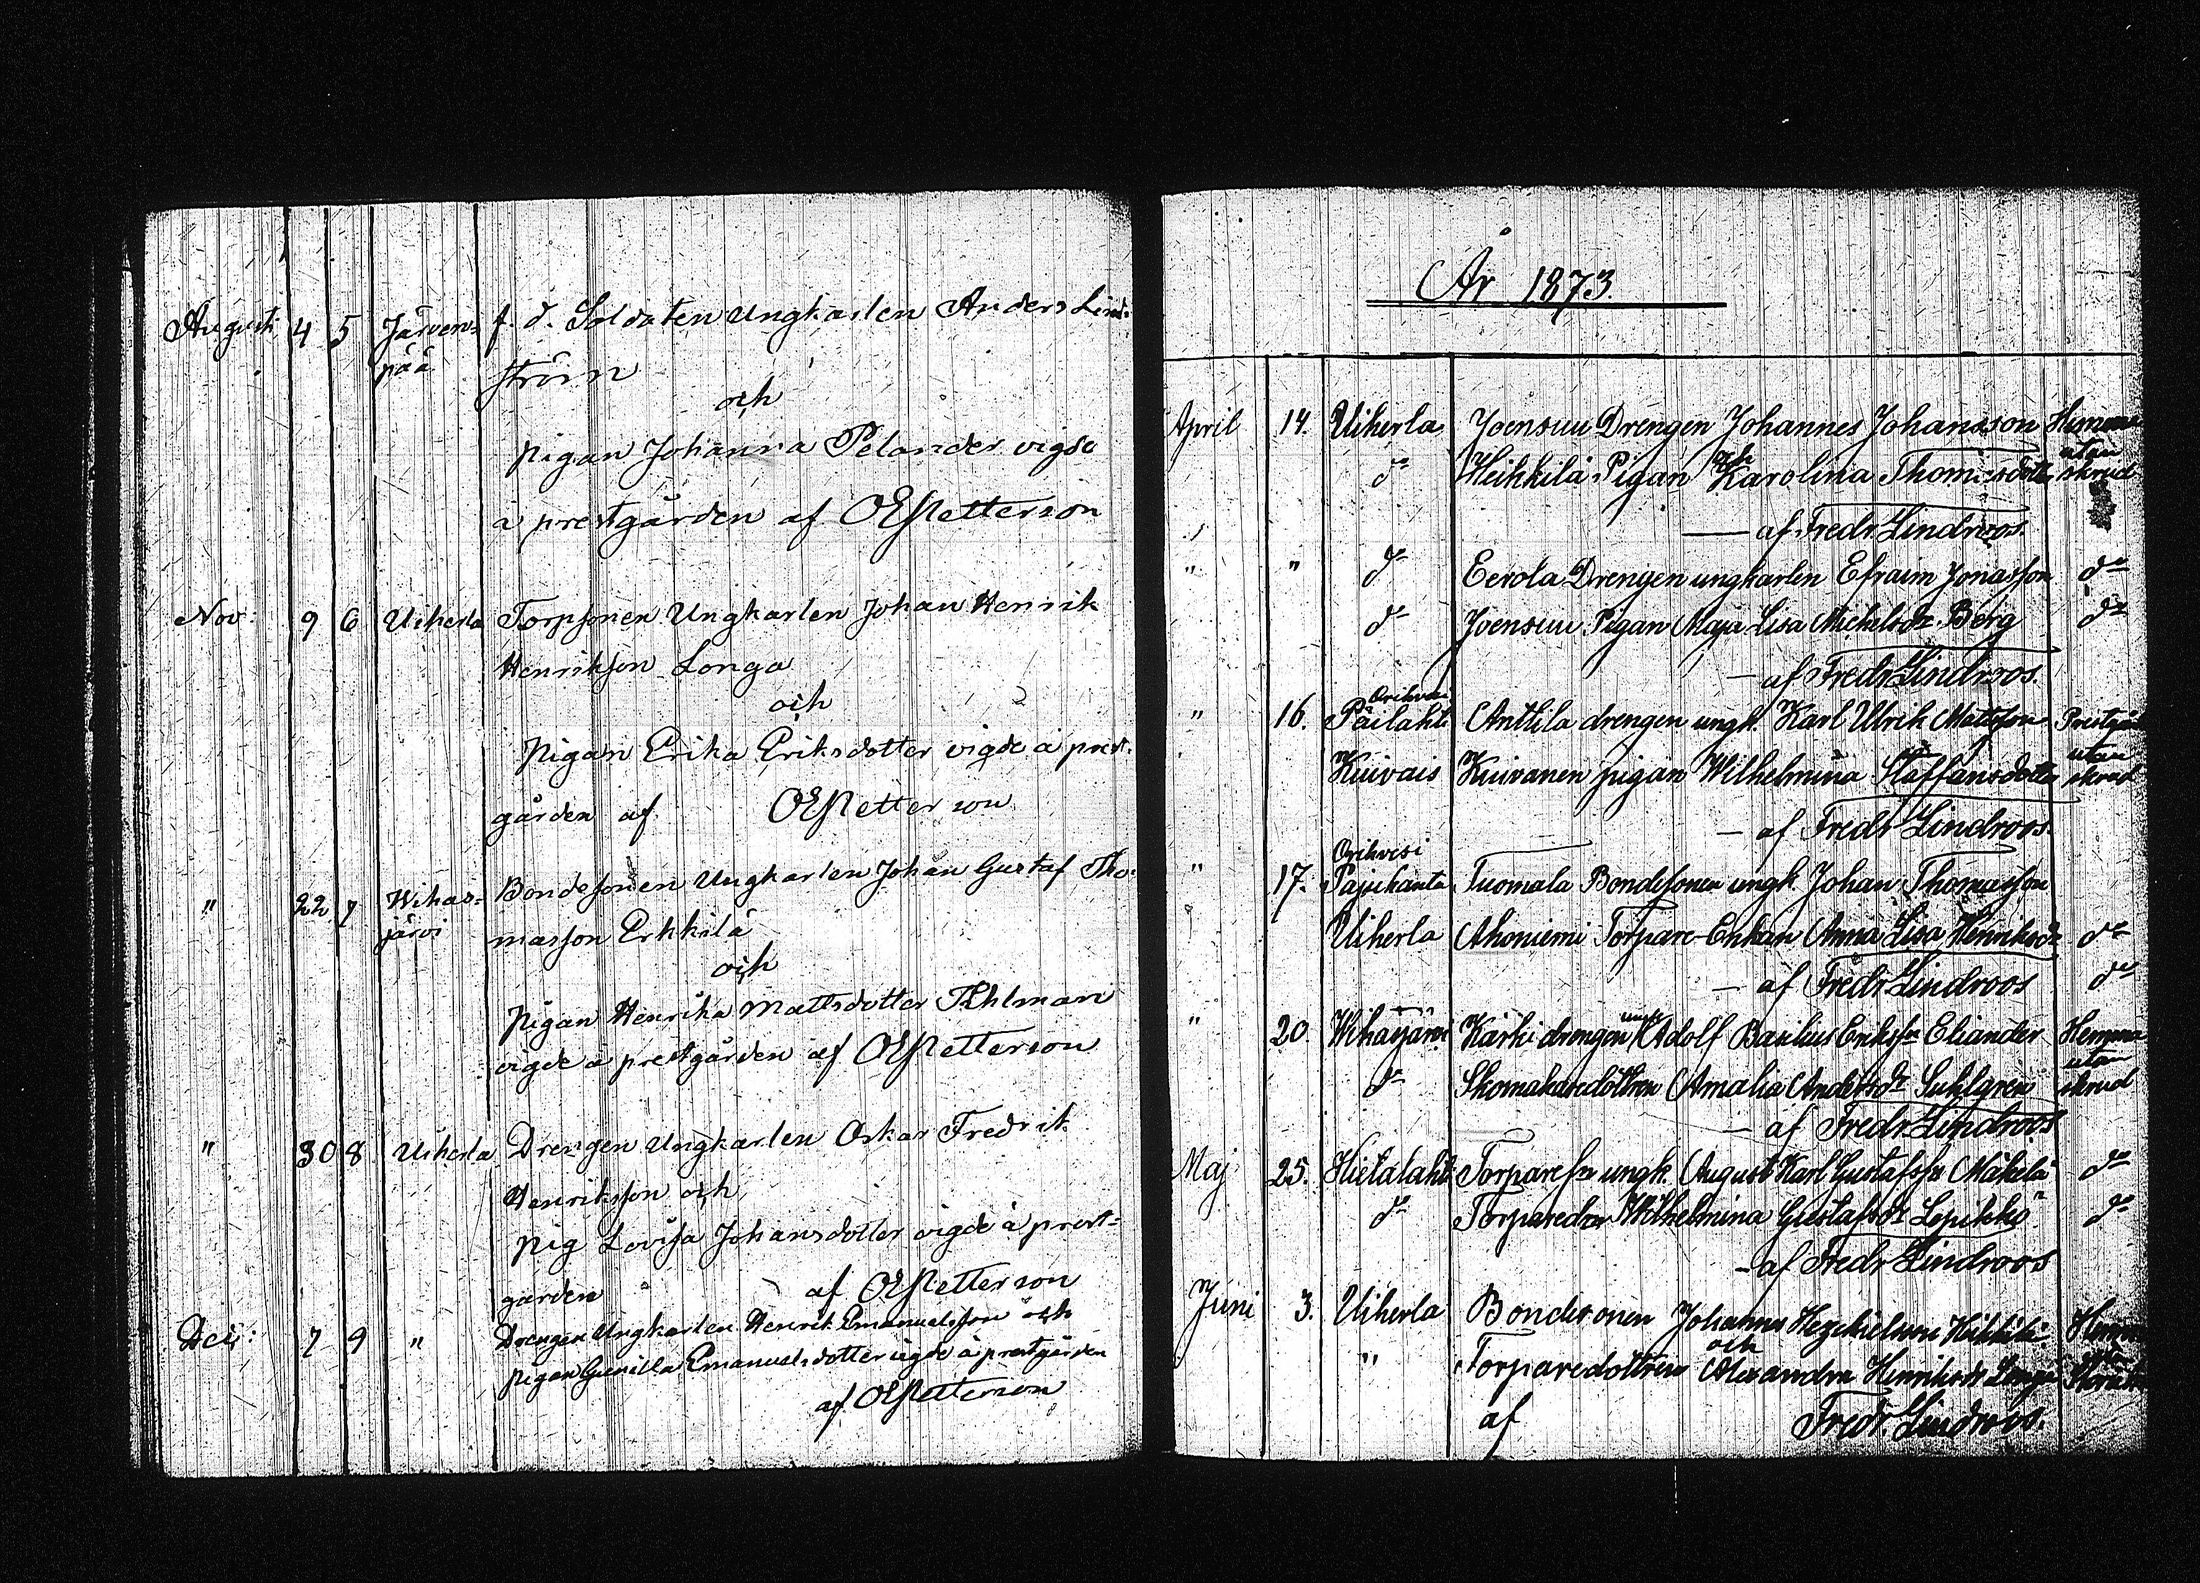 Augusti 4 5 Järven= f. d. Soldaten Ungkarlen Anders Lind=
pää ström
och
pigan Johanna Pelander vigde
å prestgården af OEPetterson
Nov: 9 6 Uiherla Torpsonen Ungkarlen Johan Henrik
Henrikson Longa
och
pigan Erika Eriksdotter vigde å prest-
gården af OEPetterson
" 22 7 Wihas= Bondesonen Ungkarlen Johan Gustaf Tho=
järvi masson Erkkilä
och
pigan Henrika Mattsdotter
vigde å prestgården af OEPetterson
" 30 8 Uiherla Drengen Ungkarlen Oskar Fredrik
Henriksson och
pig Lovisa Johansdotter vigde å prest=
gården af OEPetterson
Dec: 7 9 " Drengen Ungkarlen Henrik Emanuelsson och
pigan Gunilla Emanuelsdotter vigde å prestgården
af OEPetterson
År 1873.
April 14. Uiherla Joensuu Drengen Johannes Johansson Hemma
och utan
do Heikkilä Pigan Karolina Thomasdotter skrud
— af Fredr Lindroos.
" " do Eerola Drengen ungkarlen Efraim Jonasson do
do Joensuu Pigan Maja Lisa Michelsdr Berg do
— af Fredr Lindroos.
Orihvesi
" 16. Päilahti Anttila drengen ungk. Karl Ulrik Mattsson Prestgård
utan
Kuivais Kuivanen pigan Wilhelmina Staffansdotter skrud
— af Fredr Lindroos.
Orihvesi
" 17. Pajukanta Tuomala Bondesonen ungk. Johan Thomasson
Uiherla Ahoniemi Torpare-Enkan Anna Lisa Henriksdr do
— af Fredr Lindroos do
" 20. Wihasjärvi Kärki drengen ungk Adolf Basilius Eriksson Eliander Hemma
utan
do Skomakaredottren Amalia Andersdr Suhlgren skrud
— af Fredr Lindroos
Maj 25. Hietalahti Torparesn ungk. August Karl Gustafssn Mäkelä do
do Torparedr Wilhelmina Gustafsdr Lepikkö do
— af Fredr Lindroos
Juni 3. Uiherla Bondesonen Johannes Hezekielsson Heikkilä Hemma
och utan
" Torparedottren Alexandra Henriksdr Longa Skrud
af Fredr. Lindroos.